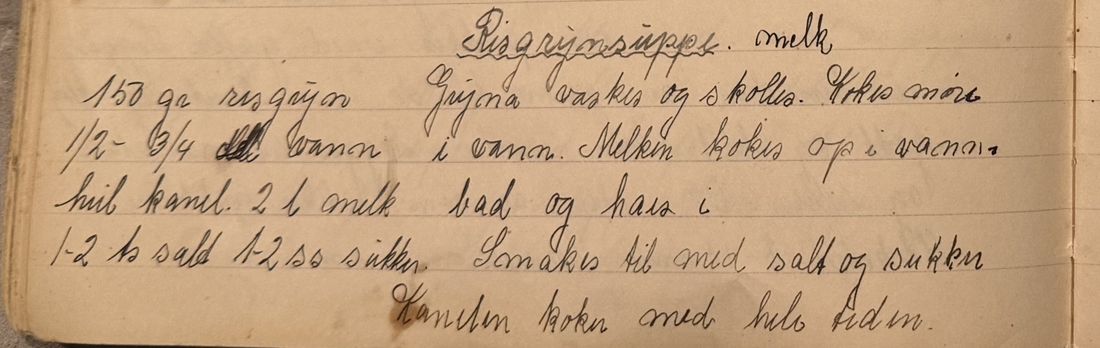 Risgrynsuppe. melk
150 gr risgryn Gryna vaskes og skolles. Kokes møre
1/2 - 3/4 vann i vann. Melken kokes op i vann-
hel kanel. 2 l melk bad og haes i
1-2 ts salt 1-2 ss sukker. Smakes til med salt og sukker
Kanelen koker med hele tiden.